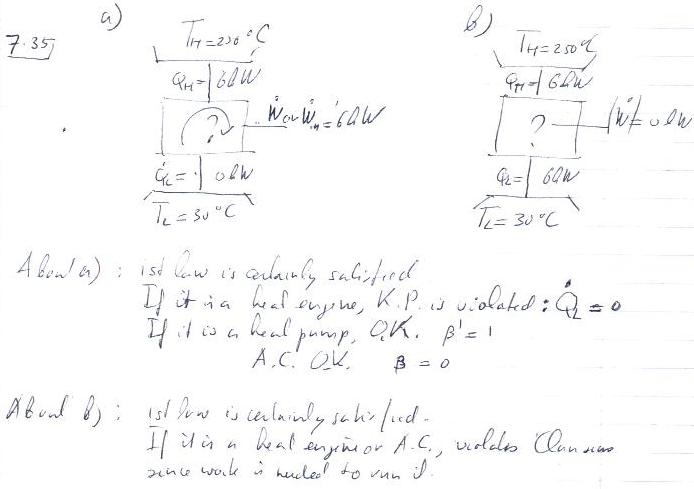 7.35)
a)
T_H = 250°C
Q_H = 6kW
?
Ẇ or Ẇ_in = 6kW
Q̇_L = 0kW
T_L = 30°C
b)
T_H = 250°C
Q_H = 6kW
?
|Ẇ| = 0kW
Q_L = 6kW
T_L = 30°C
About a) : 1st law is certainly satisfied
If it is a heat engine, K.P. is violated : Q̇_L = 0
If it is a heat pump, O.K. β' = 1
A.C. O.K. β = 0
About b) : 1st law is certainly satisfied.
If it is a heat engine or A.C., violates Clausius
since work is needed to run it.